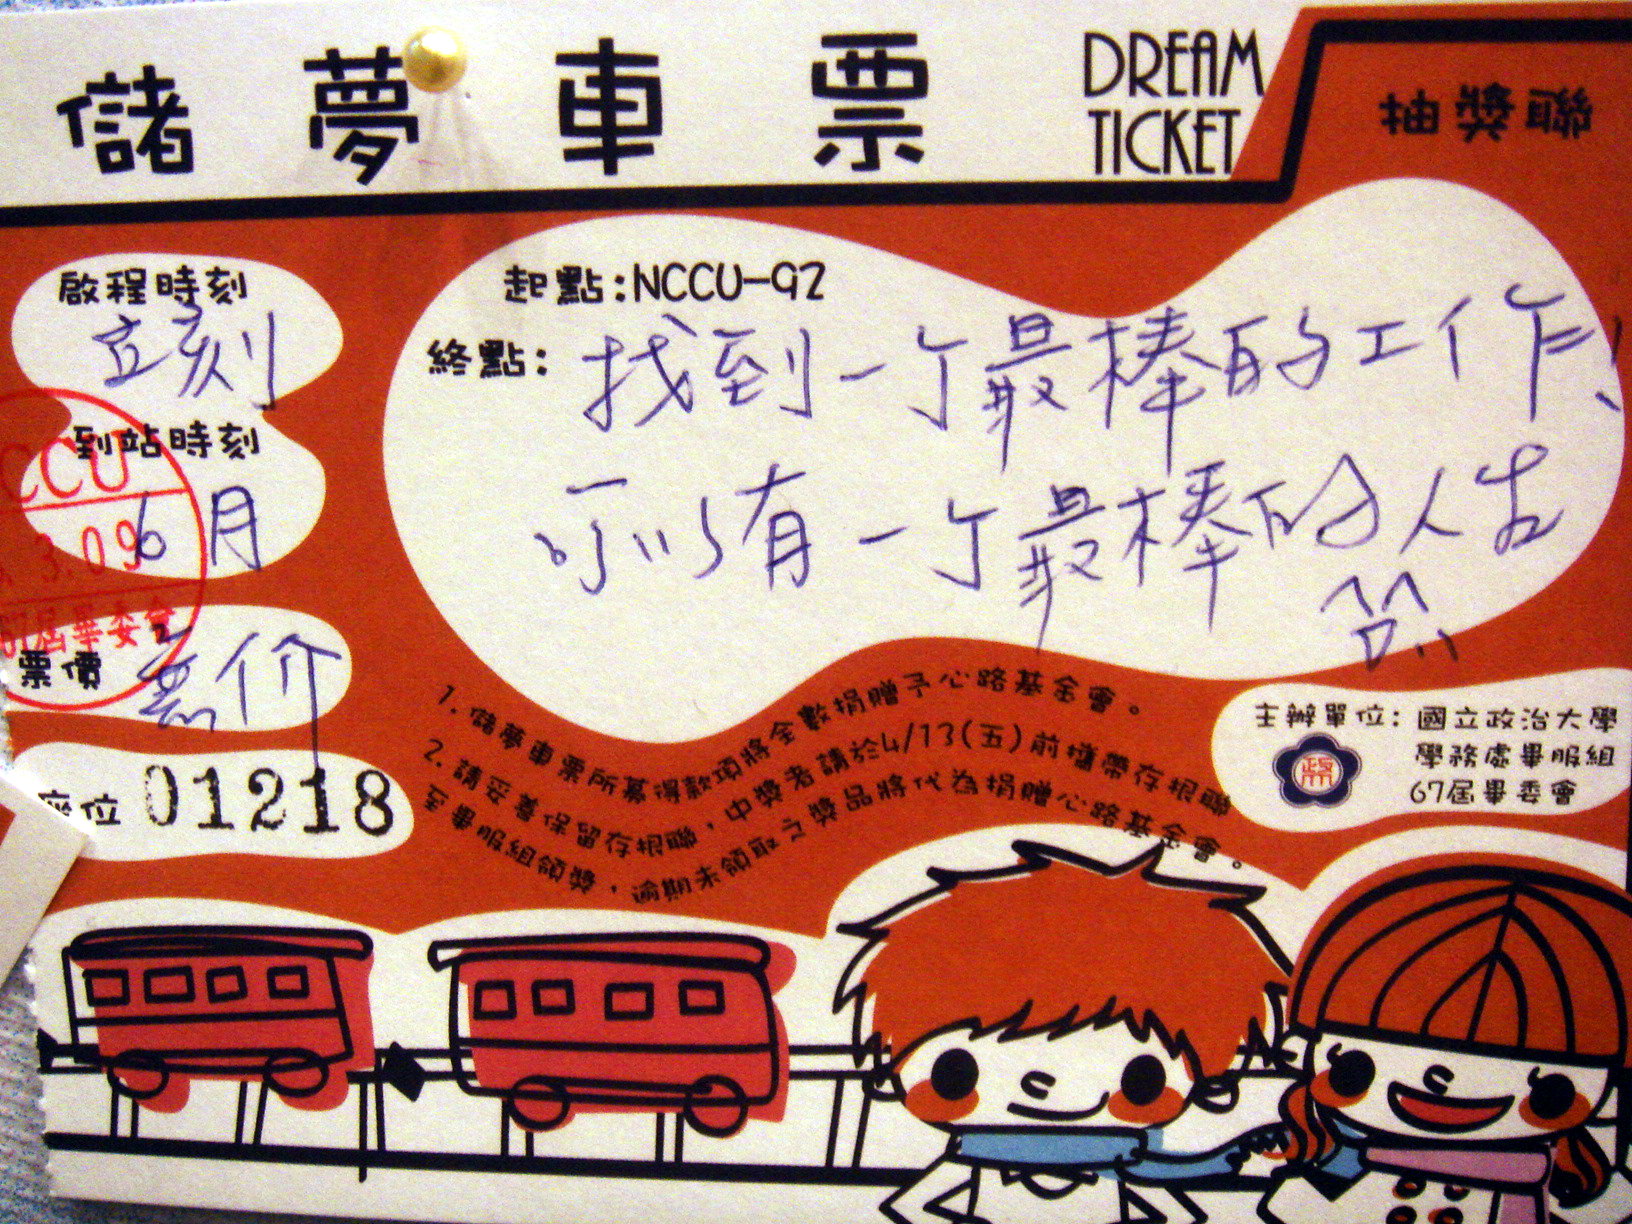 儲夢車票
DREAM
TICKET
抽獎聯
啟程時刻
立刻
到站時刻
6月
票價
無价
座位 01218
起點:NCCU-92
終點: 找到一个最棒的工作!
可以有一个最棒的人生
1. 儲夢車票所募得款項將全數捐贈予心路基金會。
2. 請妥善保留存根聯，中獎者請於4/13(五)前攜帶存根聯
至畢服組領獎，逾期未領取之獎品將代為捐贈心路基金會。
主辦單位: 國立政治大學
學務處畢服組
67屆畢委會
CCU
3.09
67屆畢委會